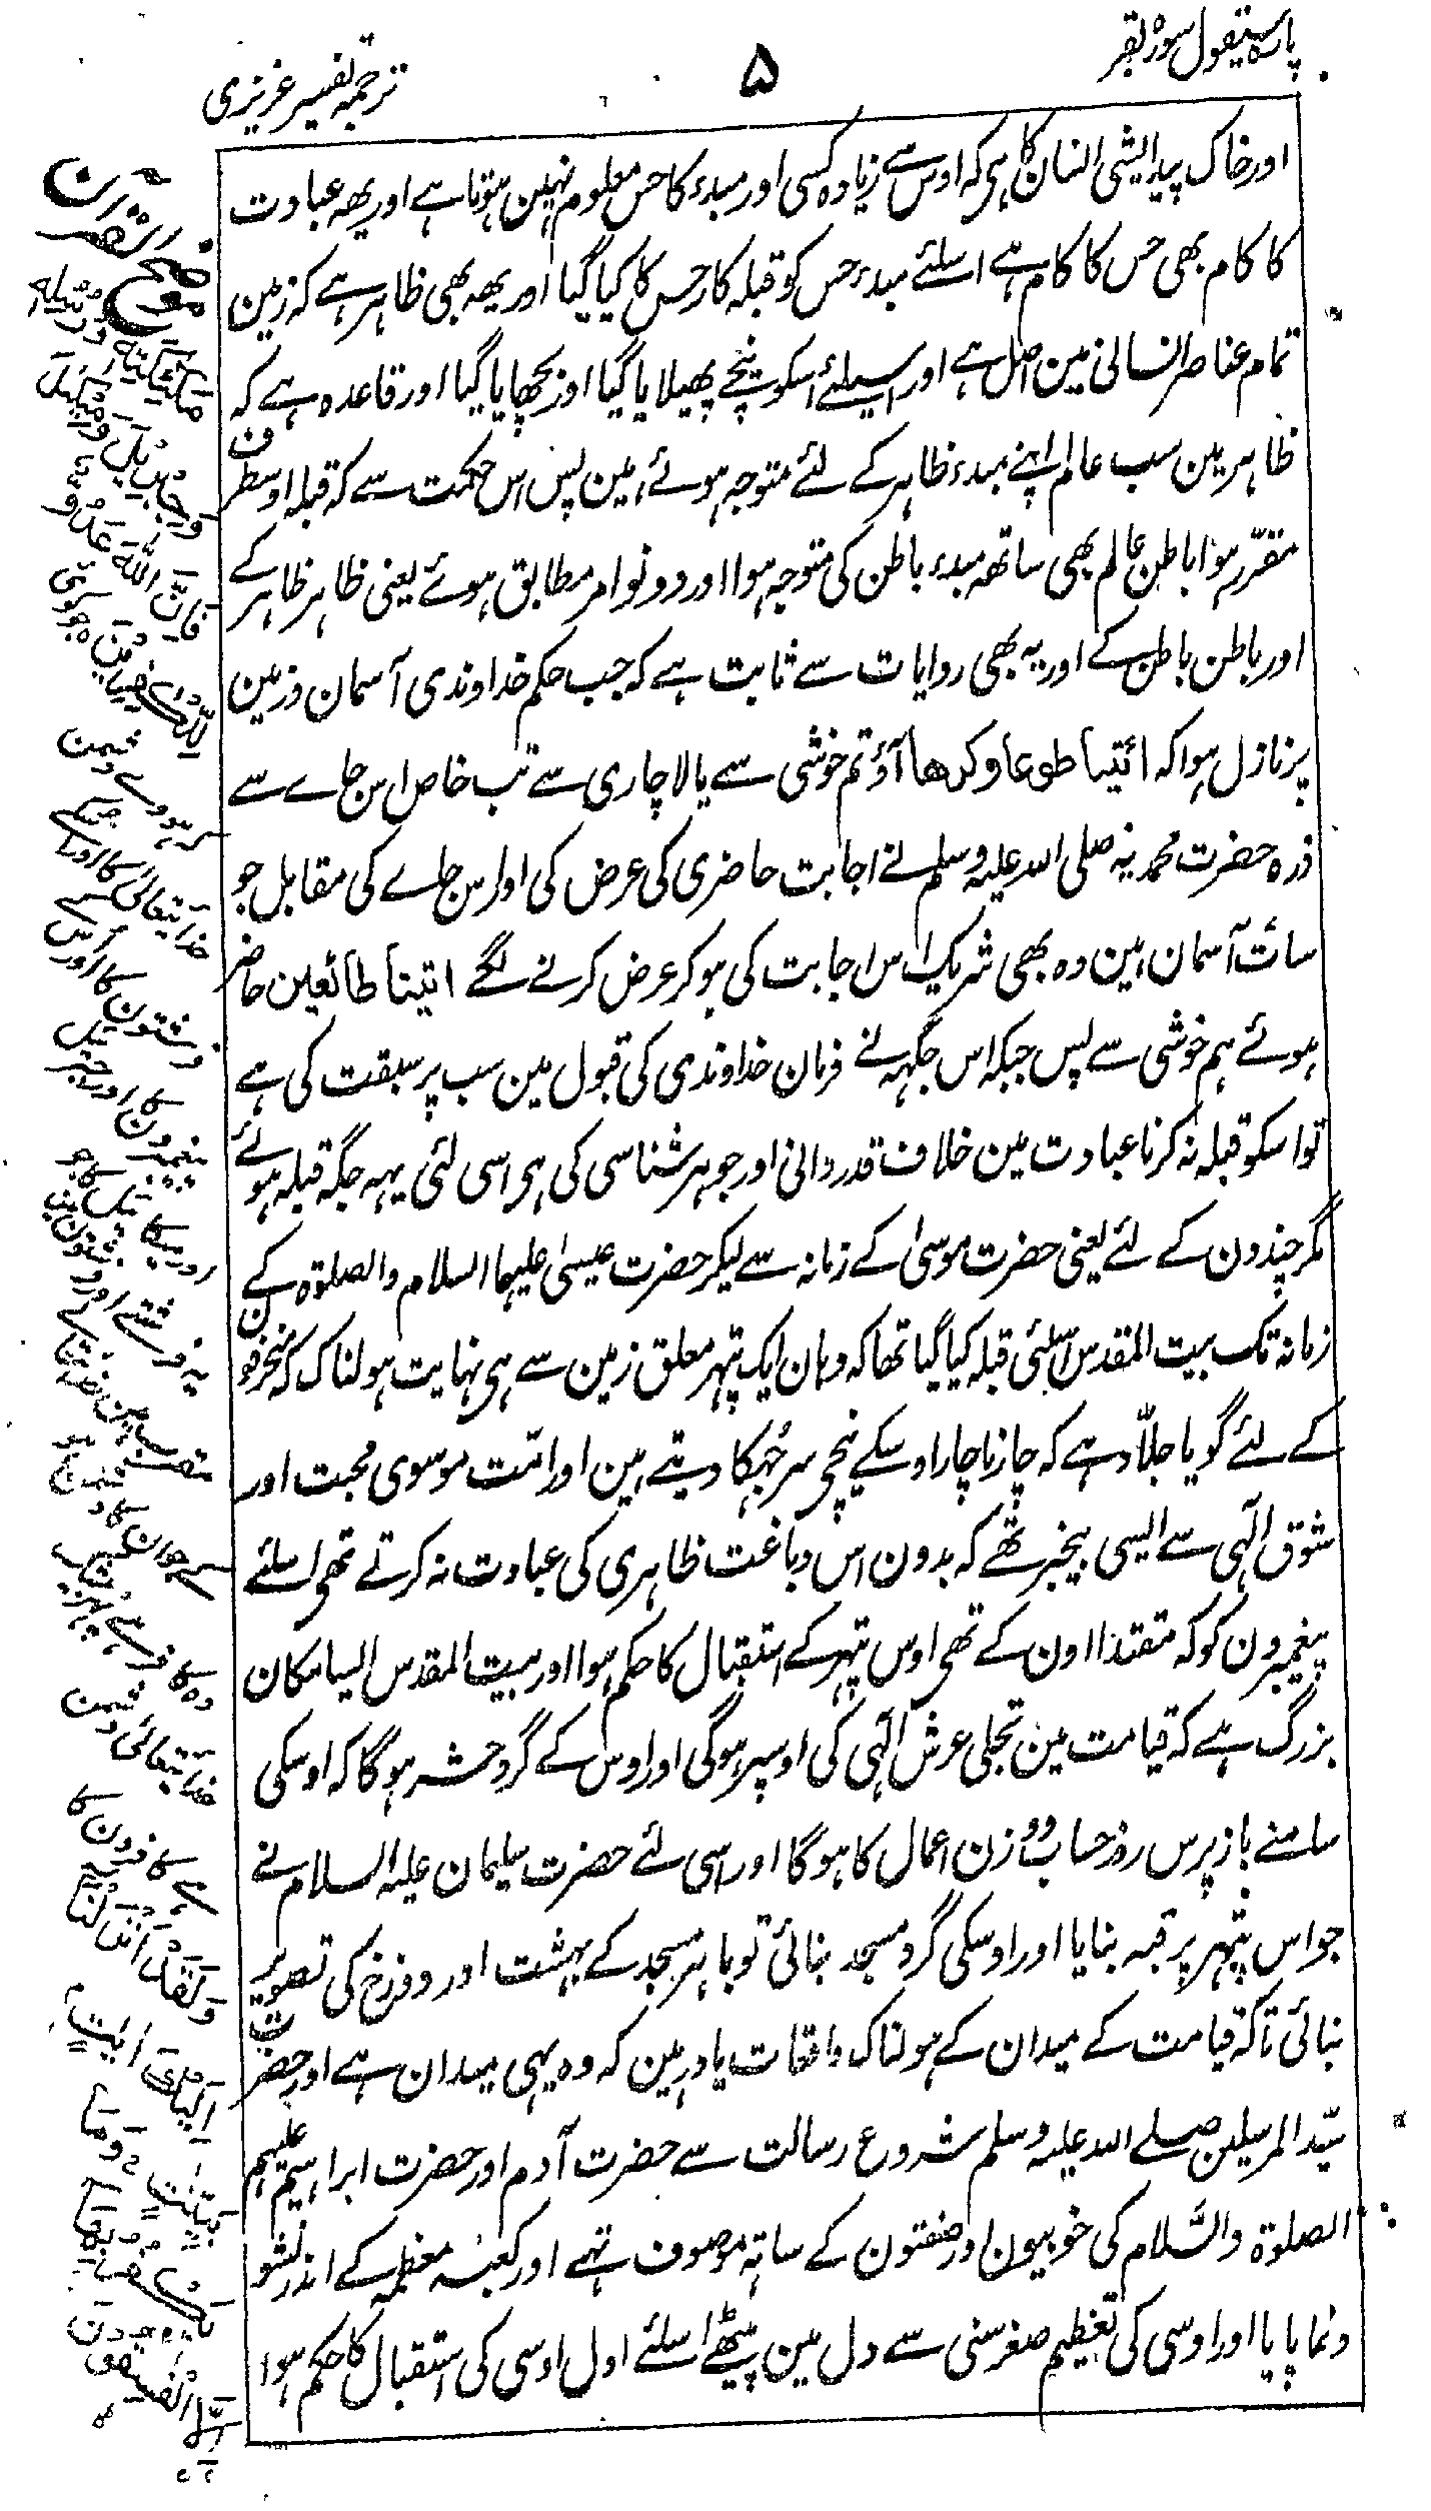 پارہ سیقول سورہ بقر
۵
ترجمہ تفسیر عزیزی
اور خاک پیدایشی انسان کا ہی کہ اوس سے زیادہ کسی اور مبدء کا حس معلوم نہین ہوتا ہے اور یھہ عبادت
کا کام بھی حس کا کام ہے اسلئے مبدء حس کو قبلہ کار حس کا کیا گیا اور یھہ بھی ظاہر ہے کہ زمین
تمام عناصر انسانی مین اصل ہے اور اسیلئے اسکو نیچے پھیلایا گیا اور بچھایا گیا اور قاعدہ ہے کہ
ظاہر مین سب عالم اپنے مبدء ظاہر کے لئے متوجہ ہوئے ہین پس اس حکمت سے کہ قبلہ اوسطرف
مقرّر ہوا باطن عالم بھی ساتھہ مبدء باطن کی متوجہ ہوا اور دونو امر مطابق ہوئے یعنی ظاہر ظاہر کے
اور باطن باطن کے اور یہ بھی روایات سے ثابت ہے کہ جب حکم خداوندی آسمان و زمین
پر نازل ہوا کہ ائتیا طوعا و کرھا آؤ تم خوشی سے یا لاچاری سے تب خاص اس جاے سے
ذرہ حضرت محمدیہ صلی اللہ علیہ وسلم نے اجابت حاضری کی عرض کی اور اس جاے کی مقابل جو
سات آسمان ہین وہ بھی شریک اس اجابت کی ہو کر عرض کرنے لگے اتینا طائعین حاضر
ہوئے ہم خوشی سے پس جبکہ اس جگہہ نے فرمان خداوندی کی قبول مین سب پر سبقت کی ہے
تو اسکو قبلہ نہ کرنا عبادت مین خلاف قدردانی اور جوہر شناسی کی ہی اسی لئی یہہ جگہ قبلہ ہوئے
مگر چند دن کے لئے یعنی حضرت موسیٰ کے زمانہ سے لیکر حضرت عیسیٰ علیہما السلام والصلوۃ کے
زمانہ تک بیت المقدس اسلئی قبلہ کیا گیا تھا کہ وہان ایک پتہر معلق زمین سے ہی نہایت ہولناک کہ منحرفون
کے لئے گویا جلاّد ہے کہ چار ناچار اوسکے نیچی سر جُھکا دیتے ہین اور امّت موسوی محبت اور
شوق الٓہی سے ایسی بیخبر تھے کہ بدون اس دباغت ظاہری کی عبادت نہ کرتے تھی اسلئے
پیغمبرون کو کہ مقتدا اون کے تھی اوس پتہر کے استقبال کا حکم ہوا اور بیت المقدس ایسا مکان
بزرگ ہے کہ قیامت مین تجلی عرش الٓہی کی اوسپر ہوگی اور اوس کے گرد حشر ہوگا کہ اوسکی
سامنے باز پرس روز حساب و وزن اعمال کا ہوگا اور اسی لئے حضرت سلیمان علیہ السلام نے
جو اس پتہر پر قبہ بنایا اور اوسکی گرد مسجد بنائی تو باہر مسجد کے بہشت اور دوزخ کی تصویر
بنائی تاکہ قیامت کے میدان کے ہولناک واقعات یاد رہین کہ وہ یہی میدان ہے اور حضرت
سیّد المرسلین صلے اللہ علیہ وسلم شروع رسالت سے حضرت آدم اور حضرت ابراہیم علیہم
الصلوۃ والسّلام کی خوبیون اور صفتون کے ساتہ موصوف تہے اور کعبہ معظمہ کے اندر نشو
و نما پایا اور اوسی کی تعظیم صغر سنی سے دل مین بیٹھے اسلئے اول اوسی کی استقبال کا حکم ہوا
موضح القرآن
مَلٰئِکَتِہٖ وَرُسُلِہٖ
وَجِبْرِیْلَ وَمِیْکٰىلَ
فَاِنَّ اللّٰہَ عَدُوٌّ
لِّلْکٰفِرِیْنَ ہ جو کوئی
کہ ہووے دشمن
خدایتعالیٰ کا اور اسکے
فرشتون کا اور اس کے
پیغمبرون کا اور جبرئیل
اور میکائیل کا جو
یہ فرشتے اور فرشتون مین
مقرب ہین
سے جو ان کا دشمن ہو
وہ کافر ہے بیشک
خدایتعالیٰ دشمن
ہے کافرون کا
وَلَقَدْ اَنْزَلْنَا
اِلَیْکَ اٰیٰتٍ
بَیِّنٰتٍ وَمَا
یَکْفُرُ بِھَا
اِلَّا الْفٰسِقُوْنَ